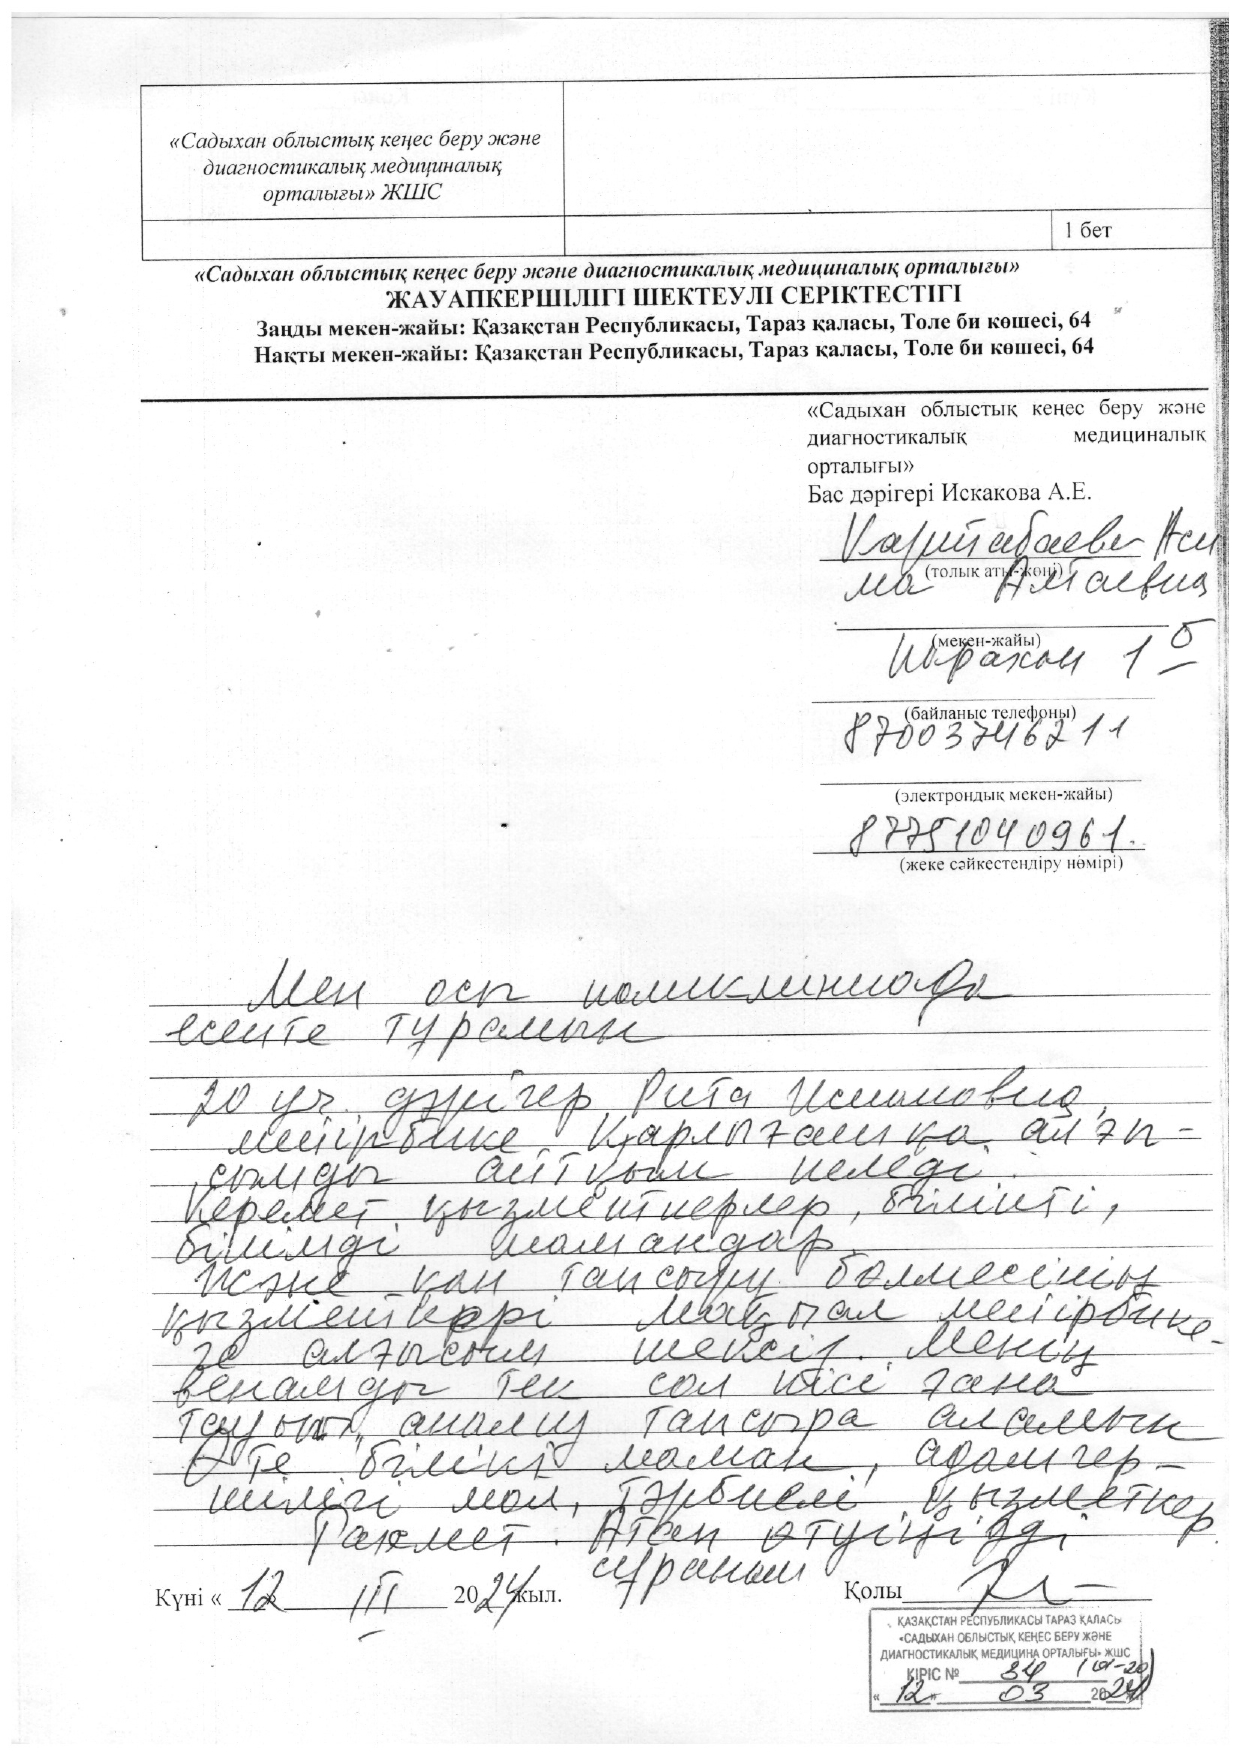 «Садыхан облыстық кеңес беру және
диагностикалық медициналық
орталығы» ЖШС
1 бет
«Садыхан облыстық кеңес беру және диагностикалық медициналық орталығы»
ЖАУАПКЕРШІЛІГІ ШЕКТЕУЛІ СЕРІКТЕСТІГІ
Заңды мекен-жайы: Қазақстан Республикасы, Тараз қаласы, Толе би көшесі, 64
Нақты мекен-жайы: Қазақстан Республикасы, Тараз қаласы, Толе би көшесі, 64
«Садыхан облыстық кеңес беру және
диагностикалық медициналық
орталығы»
Бас дәрігері Искакова А.Е.
Аси
(толық аты-жөні)
ма Алтаевна
(мекен-жайы)
1 б
(байланыс телефоны)
87003746211
(электрондық мекен-жайы)
87751040961.
(жеке сәйкестендіру нөмірі)
Мен осы поликлиникада
есепте тұрамын
20 уч. дәрігер Рита
мейірбике Қарлығашқа алғы-
сымды айтқым келеді.
Керемет қызметкерлер, білікті,
білімді мамандар.
Және қан тапсыру бөлмесінің
қызметкері Мақпал мейірбике-
ге алғысым шексіз. Менің
венамды тек сол кісі ғана
тауып, анализ тапсыра аламын
Өте білікті маман, адамгер-
шілігі мол, тәрбиелі қызметкер.
Рахмет. Атап өтуіңізді
сұраймын
Күні « 12 III 2024 жыл. Қолы
ҚАЗАҚСТАН РЕСПУБЛИКАСЫ ТАРАЗ ҚАЛАСЫ
«САДЫХАН ОБЛЫСТЫҚ КЕҢЕС БЕРУ ЖӘНЕ
ДИАГНОСТИКАЛЫҚ МЕДИЦИНА ОРТАЛЫҒЫ» ЖШС
КІРІС №
«12» 03 2024